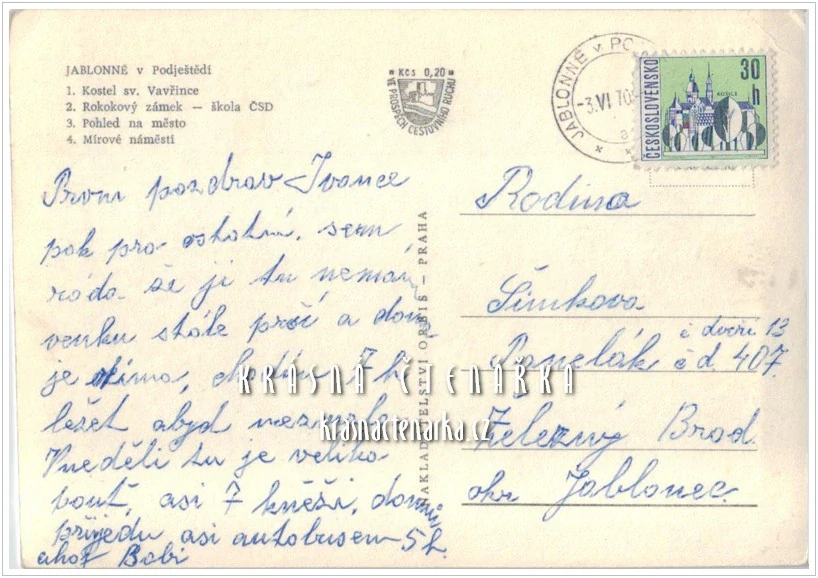 JABLONNÉ v Podještědí
1. Kostel sv. Vavřince
2. Rokokový zámek — škola ČSD
3. Pohled na město
4. Mírové náměstí
Kčs 0,20
VE PROSPĚCH CESTOVNÍHO RUCHU
JABLONNÉ v PO
-3.VI.70
ČESKOSLOVENSKO
30 h
KOŠICE
První pozdrav Ivance
pak pro ostatní, sem
ráda že ji tu nemám,
venku stále prší a doma
je zima, chodím 7 h
ležet abyd nezmrzla
Vneděli tu je veliká
pouť, asi 7 kněži, domů
přijedu asi autobusem 5 h.
ahoj Babi
NAKLADATELSTVÍ ORBIS — PRAHA
Rodina
Šimkova
č dveří 13
Panelák č d. 407.
Železný Brod
okr Jablonec.
KRÁSNÁ ČTENÁŘKA
krasnactenarka.cz